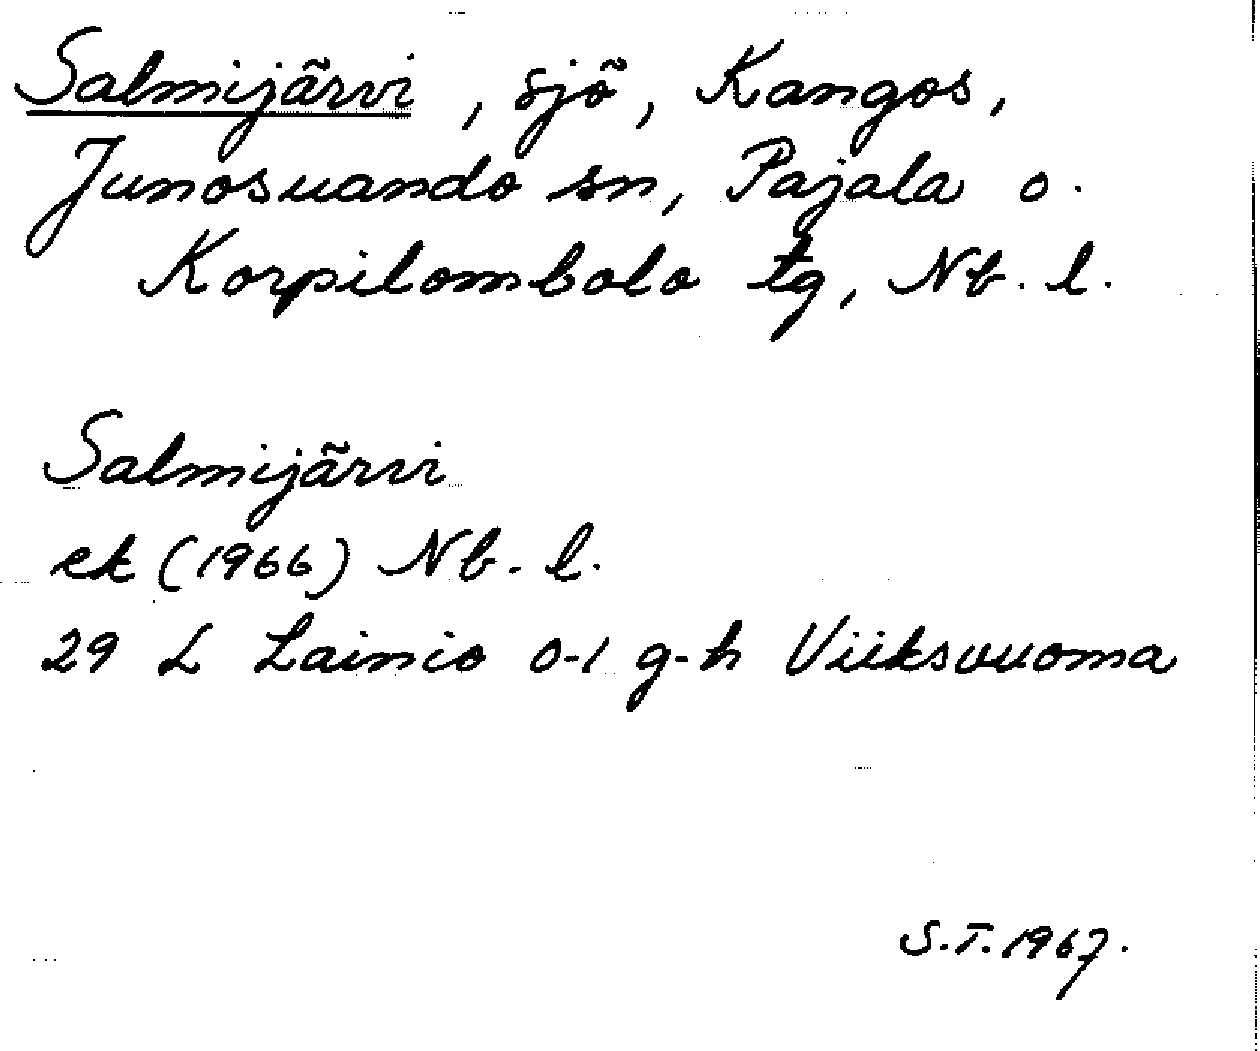 Salmijärvi, sjö, Kangos,
Junosuando sn, Pajala o.
Korpilombolo tg, Nb. l.
Salmijärvi
ek (1966) Nb. l.
29 L Lainio 0-1 g-h Viiksvuoma
S.T. 1967.